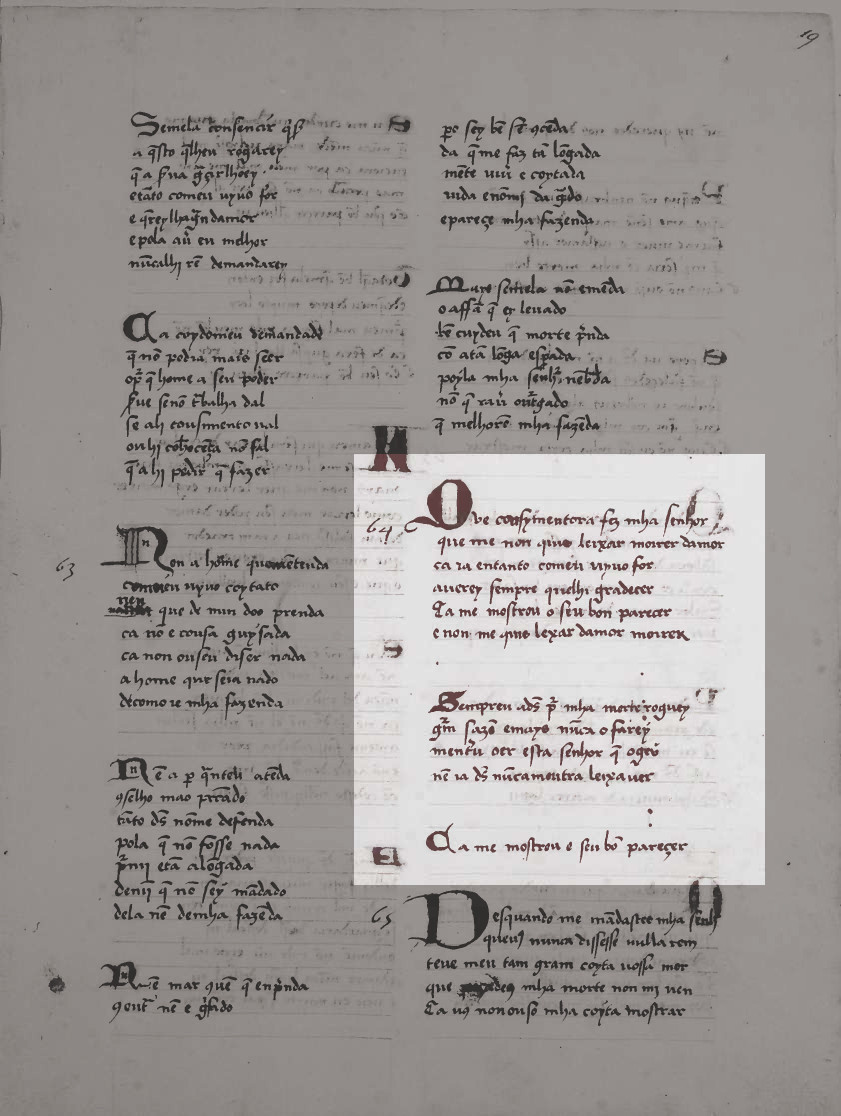 19
Semela consencir q̄ſ
a q̄sto q̄lheu rogarey
q̄ a ſua g̃çirlhoey
etãto comeu uyuo for
e q̃reylhagrãndamor
e pola au̾ eu melhor
nũcalhi rẽ demandarey
Ca coydomeu demandadé
q̄ nõ podia mais seer
op̃ q̄ home a seu poder
ſue senõ t̃balha dal
se ali cousimento ual
ou hi conhocença nõ fal
q̄ a hi poder q̄ fazer
63
Non a home quemẽtenda
comeu uyuo coytado
nen que de min doo prenda
ca nõ e cousa guysada
ca non ouseu diser nada
a home que seia nado
decomo ie mha fazenda
Nẽ a p̱ q̄ntẽu atẽda
cselho mao pecado
tãto ds̃ nõme defenda
pola q̄ nõ fosse nada
p̃ uij etã alõgada
deuij q̄ nõ sey mãdado
dela nẽ demha fazẽda
Nẽ mar quẽ q̄ enp̃nda
nẽ e g̃ſado
ꝑo sey bẽ
da q̄ me faz tã lõgada
mẽte uiu̾ e coytada
uida enõmi da g̃do
epareçe mha fazenda
Mays semela nõ emẽda
o affã q̄ ey leuado
bẽ cuydeu q̄ morte p̃nda
cõ atã lõga espada
poyla mha senhr̃ nẽbrãda
nõ q̄ rau̾ outgado
q̄ melhorẽ mha fazẽda
64
Ove consymentora fez mha senhor
que me non quis leixar moirer damor
ca ia entanto comeu uyuo for
auerey sempre quelhi gradecer
Ca me mostrou o seu bon parecer
e non me quis leyxar damor moirer
Sempreu ads̃ p̃ mha morte roguey
g̃m sazõ emays nũca o farey
mentru̾ oer esta senhor q̄ ogeu̾
nẽ ia ds̃ nũcamoutra leixa ueer
Ca me mostrou o seu bõ pareçer
65
Desquando me mãdastes mha senhr̃
queuꝯ nunca dissesse nulla rem
teue meu tam gram coyta uossa mer
que mha morte non mi uen
Ca uꝯ non ouso mha coyta mostrar